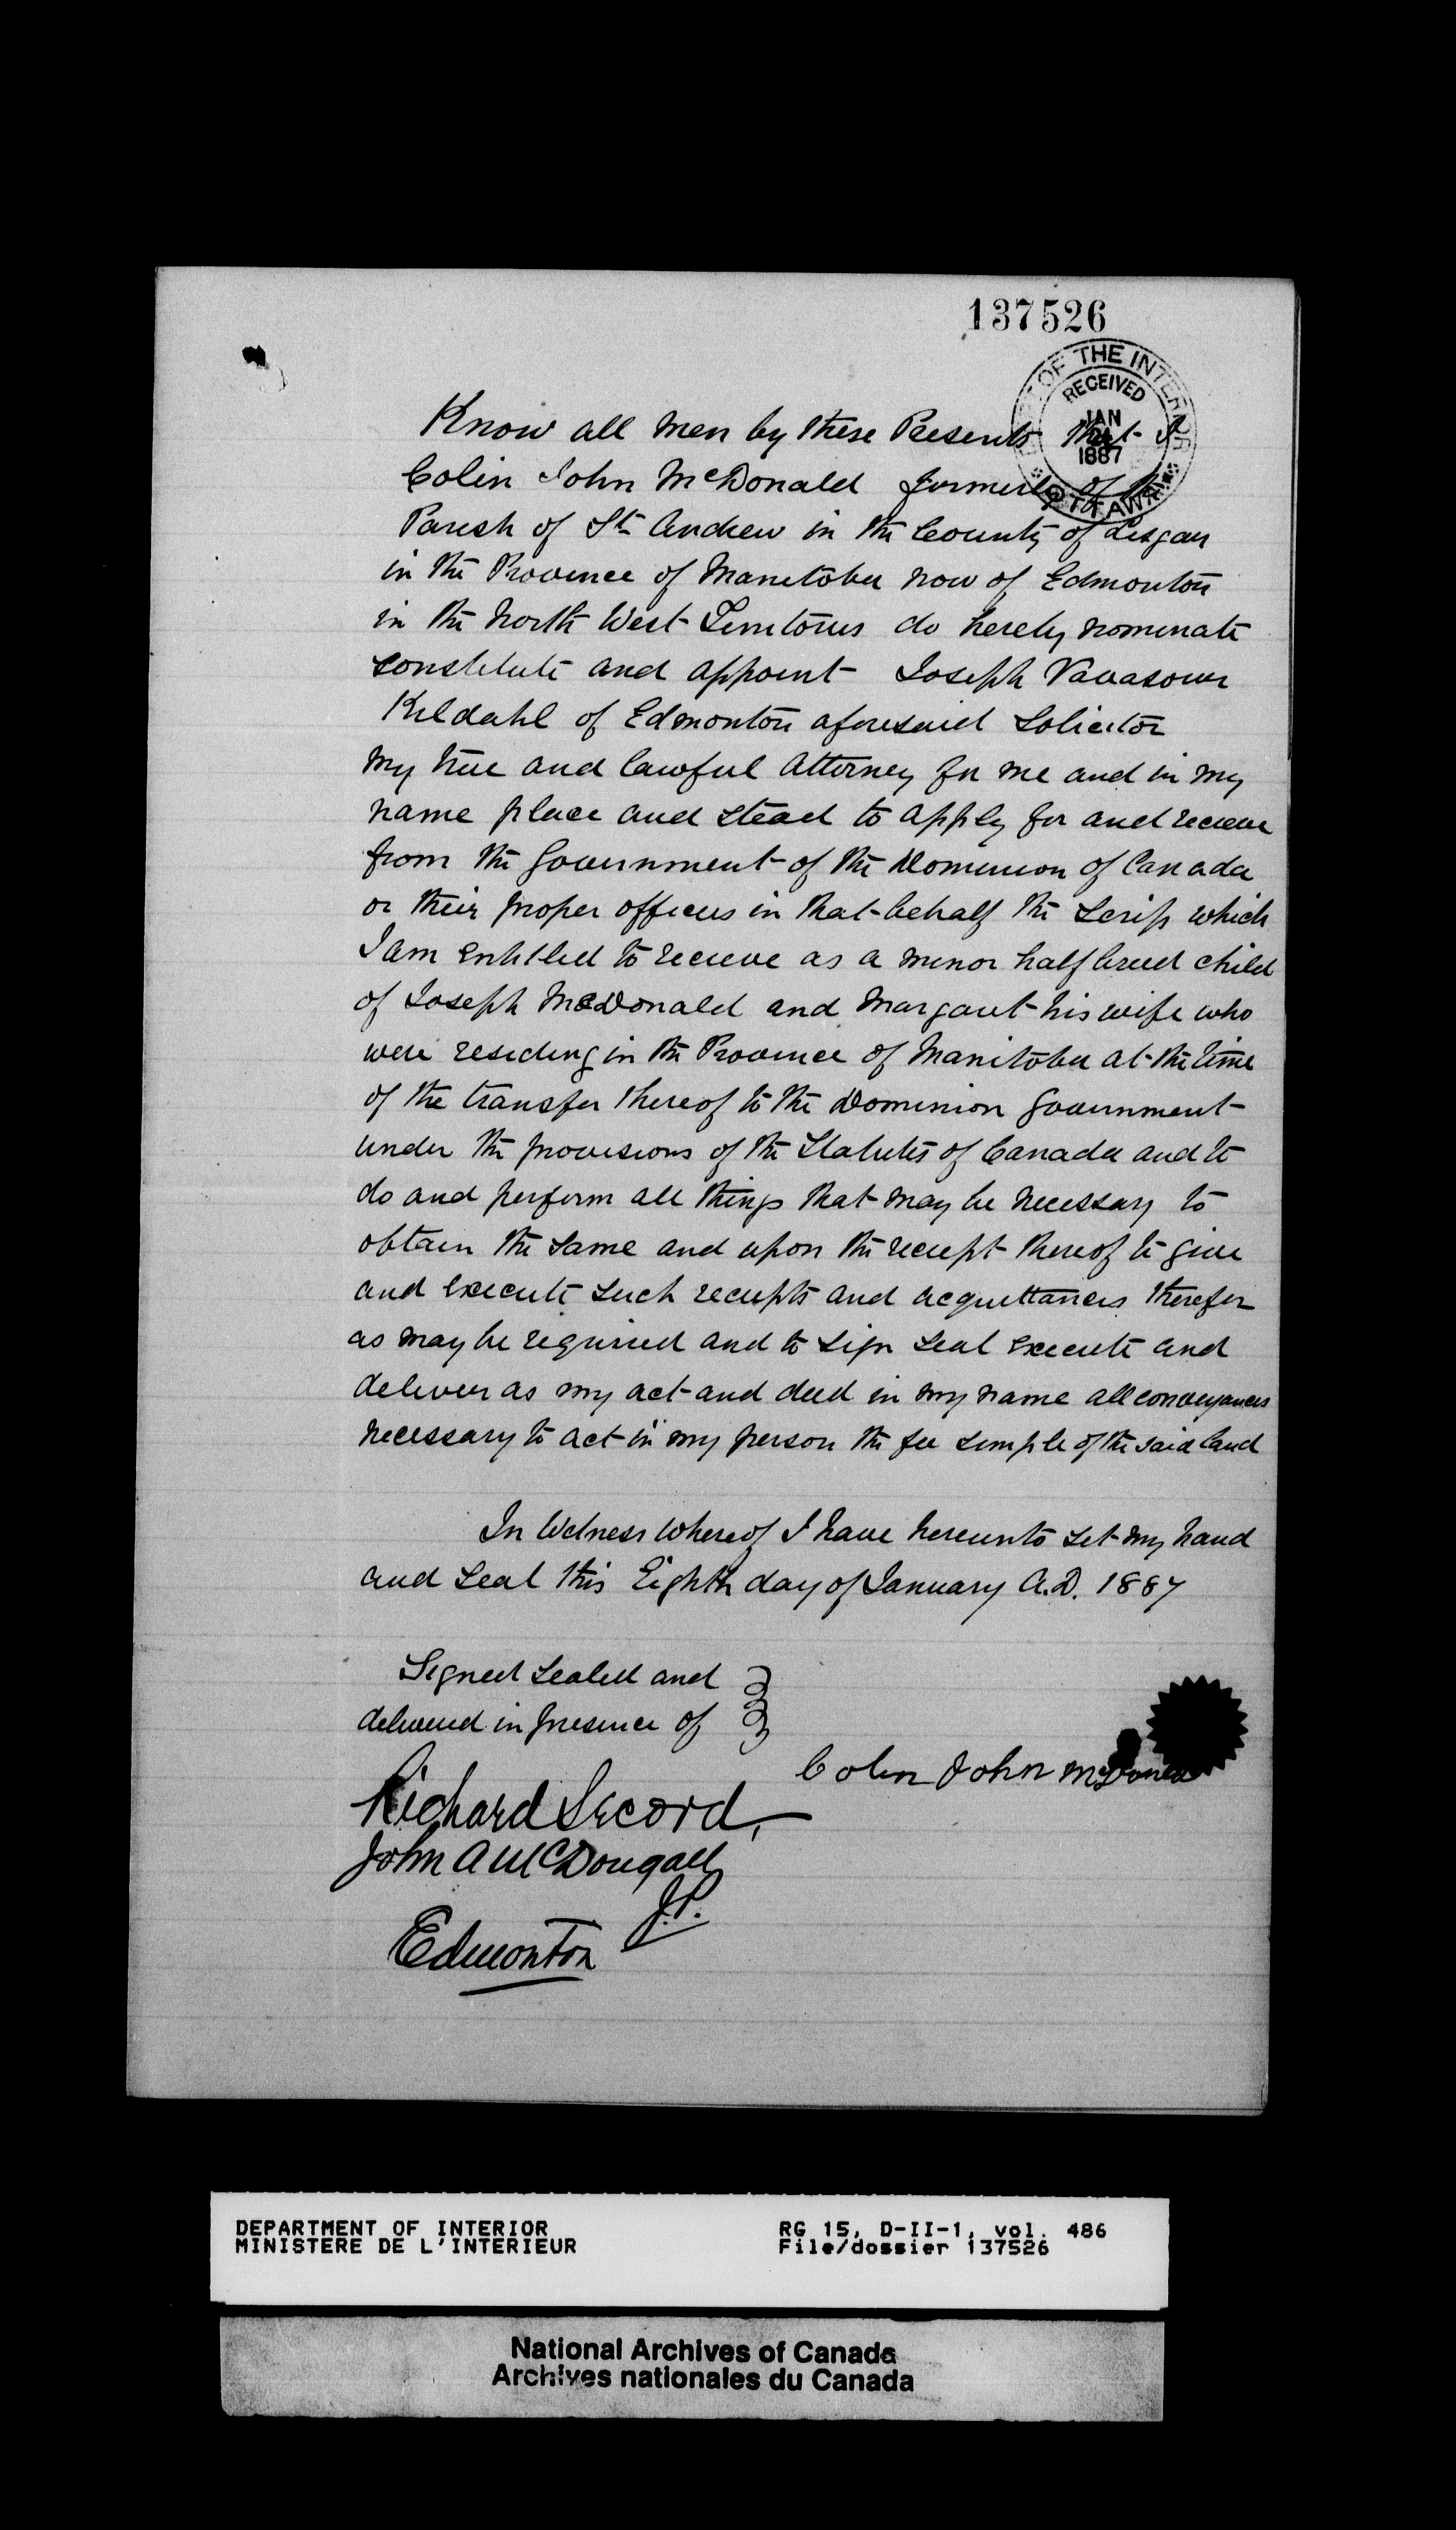 137526
DEPT OF THE INTERIOR
RECEIVED
JAN
24
1887
OTTAWA
Know all men by these Presents that I
Colin John McDonald formerly of the
Parish of St Andrew in the County of Lisgar
in the Province of Manitoba now of Edmonton
in the North West Territories do hereby nominate
constitute and appoint Joseph Vavasour
Kildahl of Edmonton aforesaid Solicitor
my true and lawful Attorney for me and in my
name place and stead to apply for and receive
from the Government of the Dominion of Canada
or their proper officers in that behalf the Scrip which
I am entitled to receive as a minor half breed child
of Joseph McDonald and Margaret his wife who
were residing in the Province of Manitoba at the time
of the transfer thereof to the Dominion Government
under the provisions of the Statutes of Canada and to
do and perform all things that may be necessary to
obtain the same and upon the receipt thereof to give
and execute such receipts and acquittances therefor
as may be required and to sign seal execute and
deliver as my act and deed in my name all conveyances
necessary to act in my person the fee simple of the said land
In Witness whereof I have hereunto set my hand
and seal this Eighth day of January A.D. 1887
Signed Sealed and
delivered in presence of
Colin John McDonald
Richard Secord
John A McDougall
J.P.
Edmonton
DEPARTMENT OF INTERIOR RG 15, D-II-1, vol. 486
MINISTERE DE L'INTERIEUR File/dossier 137526
National Archives of Canada
Archives nationales du Canada